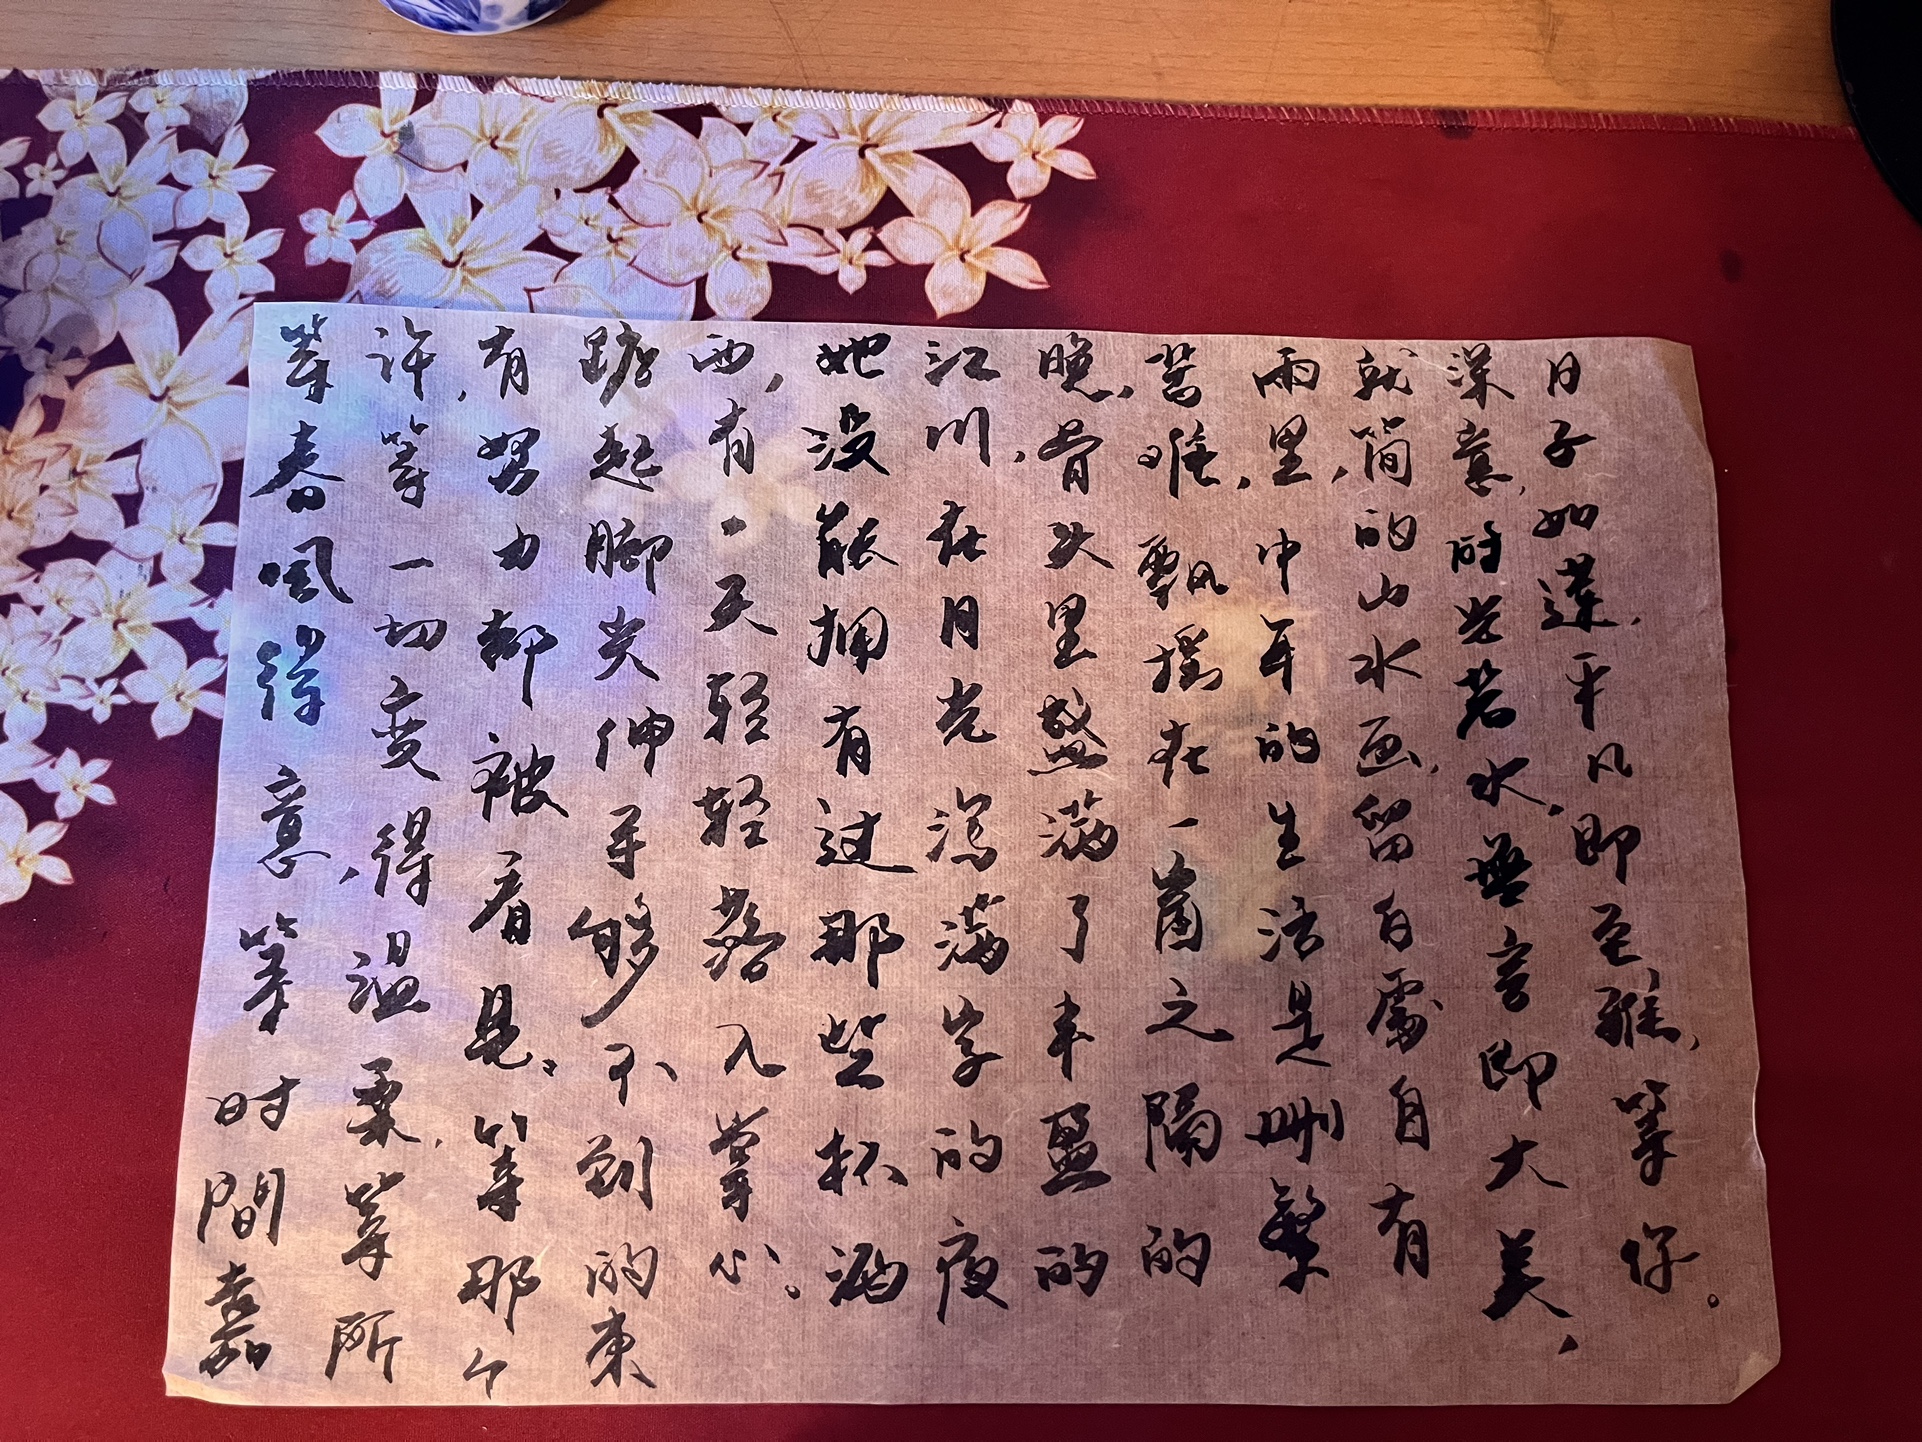 等春風得意,等时間嘉
许,等一切变得温柔,等所
有努力都被看見。等那个
踮起脚尖伸手够不到的東
西,有一天轻轻落入掌心。
她没能拥有过那些杯酒
江川,在月光泻满字的夜
晚,骨头里盛满了丰盈的
舊唯,飄摇在一窗之隔的
雨里,中年的生活是删繁
就简的山水画,留白處自有
深意,时光若水,無言即大美,
日子如莲,平凡即至雅,等你。